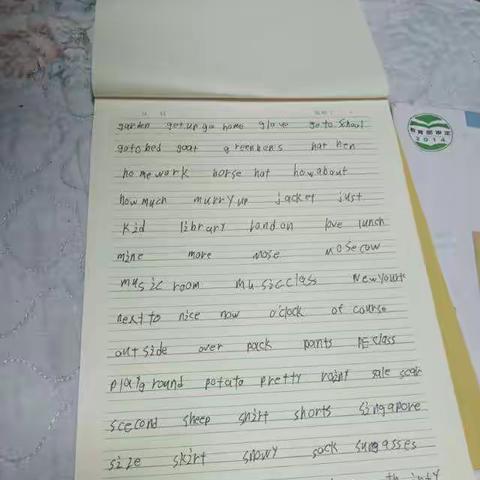 garden get up go home glove go to School
go to bed goat greenbens hat hen
homework horse hot how about
how much murry up jacket just
kid library london love lunch
mine more nose mosecow
music room music class New york
next to nice now o'clock of course
outside over pack pants PE class
playground potato pretty
scecond sheep shirt shorts singapore
size skirt snowy sock sungasses
教育部审定
2014